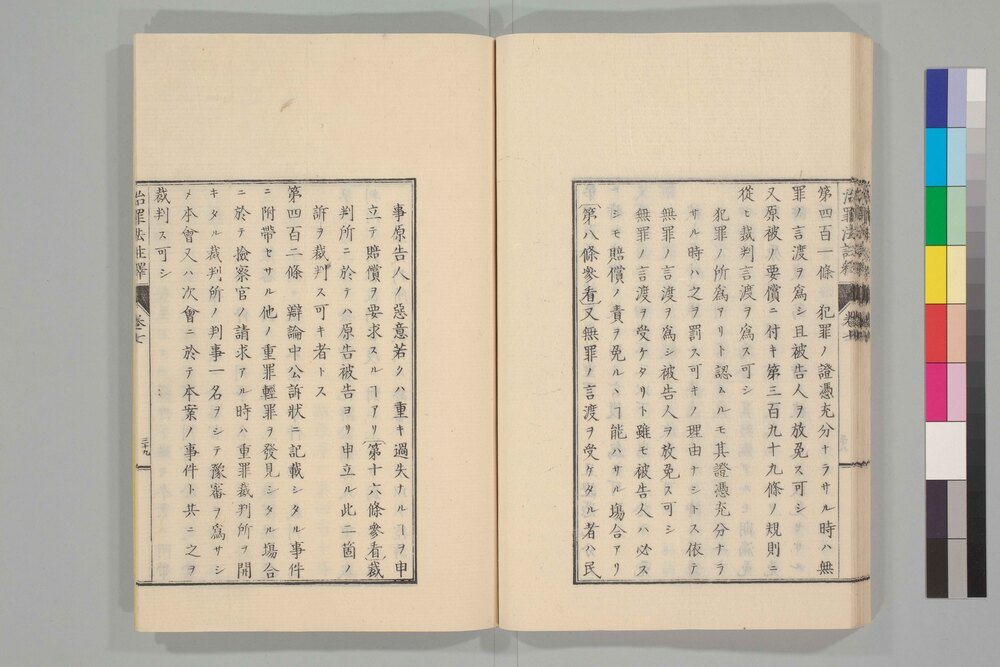 第四百一條　犯罪ノ證憑充分ナラサル時ハ無
罪ノ言渡ヲ爲シ且被告人ヲ放免ス可シ
又原被ノ要償ニ付キ第三百九十九條ノ規則ニ
從ヒ裁判言渡ヲ爲ス可シ
犯罪ノ所爲アリト認ムルモ其證憑充分ナラ
サル時ハ之ヲ罰ス可キノ理由ナシトス依テ
無罪ノ言渡ヲ爲シ被告人ヲ放免ス可シ
無罪ノ言渡ヲ受ケタリト雖モ被告人ハ必ス
シモ賠償ノ責ヲ免ルヽヿ能ハサル塲合アリ
（第八條參看）又無罪ノ言渡ヲ受ケタル者ハ民
事原告人ノ惡意若クハ重キ過失ナルヿヲ申
立テ賠償ヲ要求スルヿアリ（第十六條參看）裁
判所ニ於テハ原告被告ヨリ申立ル此二箇ノ
訴ヲ裁判ス可キ者トス
第四百二條　辯論中公訴狀ニ記載シタル事件
ニ附帶セサル他ノ重罪輕罪ヲ發見シタル塲合
ニ於テ撿察官ノ請求アル時ハ重罪裁判所ヲ開
キタル裁判所ノ判事一名ヲシテ豫審ヲ爲サシ
メ本會又ハ次會ニ於テ本案ノ事件ト共ニ之ヲ
裁判ス可シ
治罪法註釋　卷七　三十九